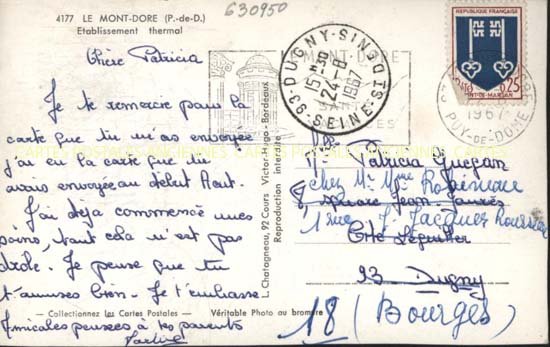 4177 LE MONT-DORE (P.-de-D.)
Etablissement thermal
630950
Chère Patricia
Je te remercie pour la
carte que tu m'as envoyée
j'ai eu la carte que tu
avais envoyée au début Aout.
J'ai déjà commencé mes
soins, tout cela n'est pas
drole. Je pense que tu
t'amuses bien. Je t'embrasse
Amicales pensées à tes parents
— Collectionnez les Cartes Postales —
Véritable Photo au bromure
L. Chatagneau, 92 Cours Victor-Hugo - Bordeaux
Reproduction interdite
DUGNY-S/INGS
15H30
24-8
1967
93-SEINE
MONT-DORE
REPUBLIQUE FRANÇAISE
0,25
MONT-DE-MARSAN
1967
PUY-DE-DOME
CARTES POSTALES ANCIENNES
Patricia Guegan
chez Mr Mme
Jean Jaurès
1 rue J. Jacques Rousseau
Cité
93 Dugny
18 (Bourges)